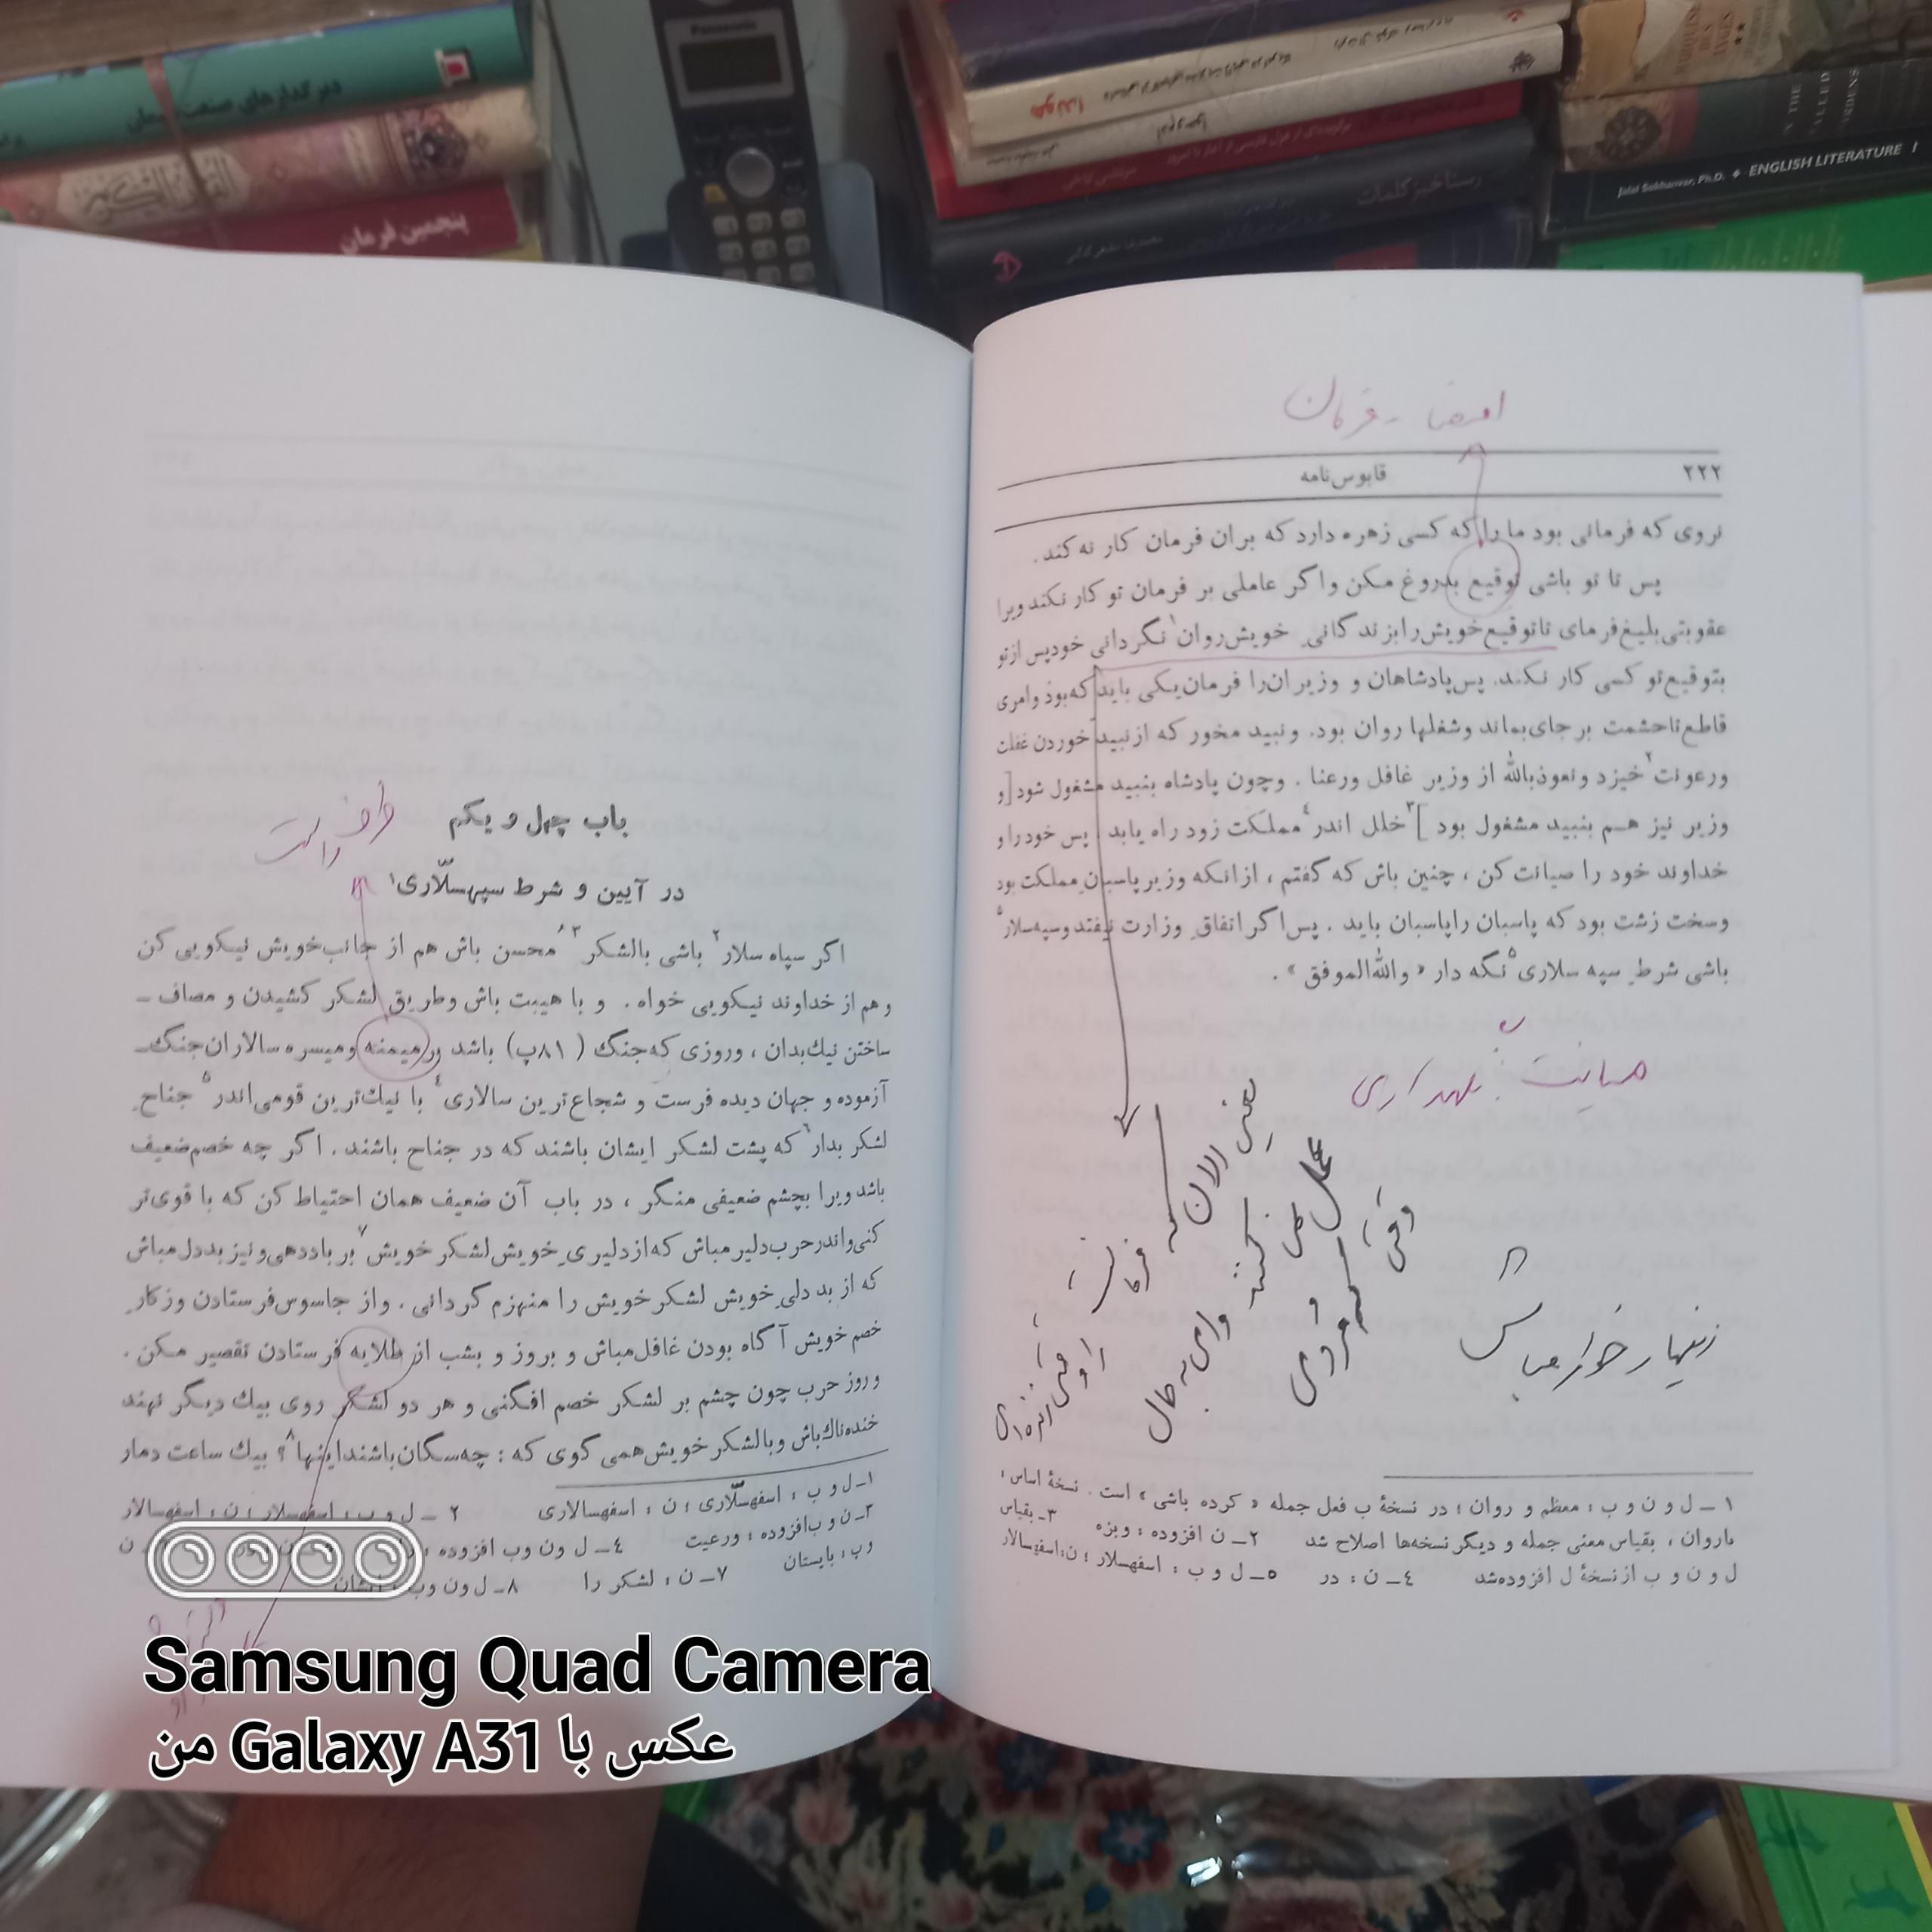 Panasonic
هنرگذارهای صنعت سیمان
پنجمین فرمان
هوندا
رستاخیز کلمات
Jalal Sokhanvar, Ph.D. ENGLISH LITERATURE I
امضا - فرمان
۲۲۲
قابوس‌نامه
نروی که فرمانی بود ما را که کسی زهره دارد که بران فرمان کار نه کند.
پس تا تو باشی توقیع بدروغ مکن واگر عاملی بر فرمان تو کار نکند ویرا
عقوبتی بلیغ فرمای تا توقیع خویش را بزندگانی خویش روان۱ نگردانی خود پس از تو
بتوقیع تو کسی کار نکند. پس پادشاهان و وزیران را فرمان یکی باید که بود وامری
قاطع تا حشمت بر جای بماند وشغلها روان بود. و نبید مخور که از نبید خوردن غفلت
ورعونت۲ خیزد و نعوذبالله از وزیر غافل ورعنا. وچون پادشاه بنبید مشغول شود [و
وزیر نیز هم بنبید مشغول بود]۳ خلل اندر۴ مملکت زود راه یابد. پس خود را و
خداوند خود را صیانت کن، چنین باش که گفتم، ازانکه وزیر پاسبان مملکت بود
وسخت زشت بود که پاسبان را پاسبان باید. پس اگر اتفاق وزارت نیفتد وسپه‌سلار۵
باشی شرط سپه سلاری۵ نگه دار «والله الموفق».
صیانت: نگهداری
یعنی الان که
عمل نمی کنند
وای به حال
وقتی
زنهارخوار مباش
۱ ـ ل و ن و ب: معظم و روان؛ در نسخهٔ ب فعل جمله «کرده باشی» است. نسخهٔ اساس:
باروان، بقیاس معنی جمله و دیگر نسخه‌ها اصلاح شد ۲ـ ن افزوده: وبزه ۳ـ بقیاس
ل و ن و ب از نسخهٔ ل افزوده شد ۴ـ ن: در ۵ـ ل و ب: اسفهسلار؛ ن: اسفهسالار
باب چهل و یکم
طرف راست
در آیین و شرط سپهسلّاری۱
اگر سپاه سلار۲ باشی بالشکر۳ محسن باش هم از جانب خویش نیکویی کن
و هم از خداوند نیکویی خواه. و با هیبت باش وطریق لشکر کشیدن و مصاف ـ
ساختن نیك بدان، وروزی که جنگ (۸۱پ) باشد برمیمنه ومیسره سالاران جنگ‌ـ
آزموده و جهان دیده فرست و شجاع‌ترین سالاری۴ با نیك‌ترین قومی اندر۵ جناح
لشکر بدار۶ که پشت لشکر ایشان باشند که در جناح باشند. اگر چه خصم ضعیف
باشد ویرا بچشم ضعیفی منگر، در باب آن ضعیف همان احتیاط کن که با قوی‌تر
کنی واندر حرب دلیر مباش که از دلیری خویش لشکر خویش۷ بر باد دهی و نیز بددل مباش
که از بد دلی خویش لشکر خویش را منهزم گردانی. واز جاسوس فرستادن وز کار
خصم خویش آگاه بودن غافل مباش و بروز و بشب از طلایه فرستادن تقصیر مکن.
و روز حرب چون چشم بر لشکر خصم افگنی و هر دو لشکر روی بیك دیگر نهند
خنده‌ناك باش و بالشکر خویش همی گوی که: چه سگان باشند اینها۸؟ بیك ساعت دمار
۱ـ ل و ب: اسفهسلّاری؛ ن: اسفهسالاری ۲ ـ ل و ب: اسفهسلار؛ ن: اسفهسالار
۳ـ ن و ب افزوده: ورعیت ۴ـ ل ون وب افزوده
و ب: بایستان ۷ـ ن: لشکر را ۸ـ ل ون وب: ایشان
Samsung Quad Camera
عکس با Galaxy A31 من